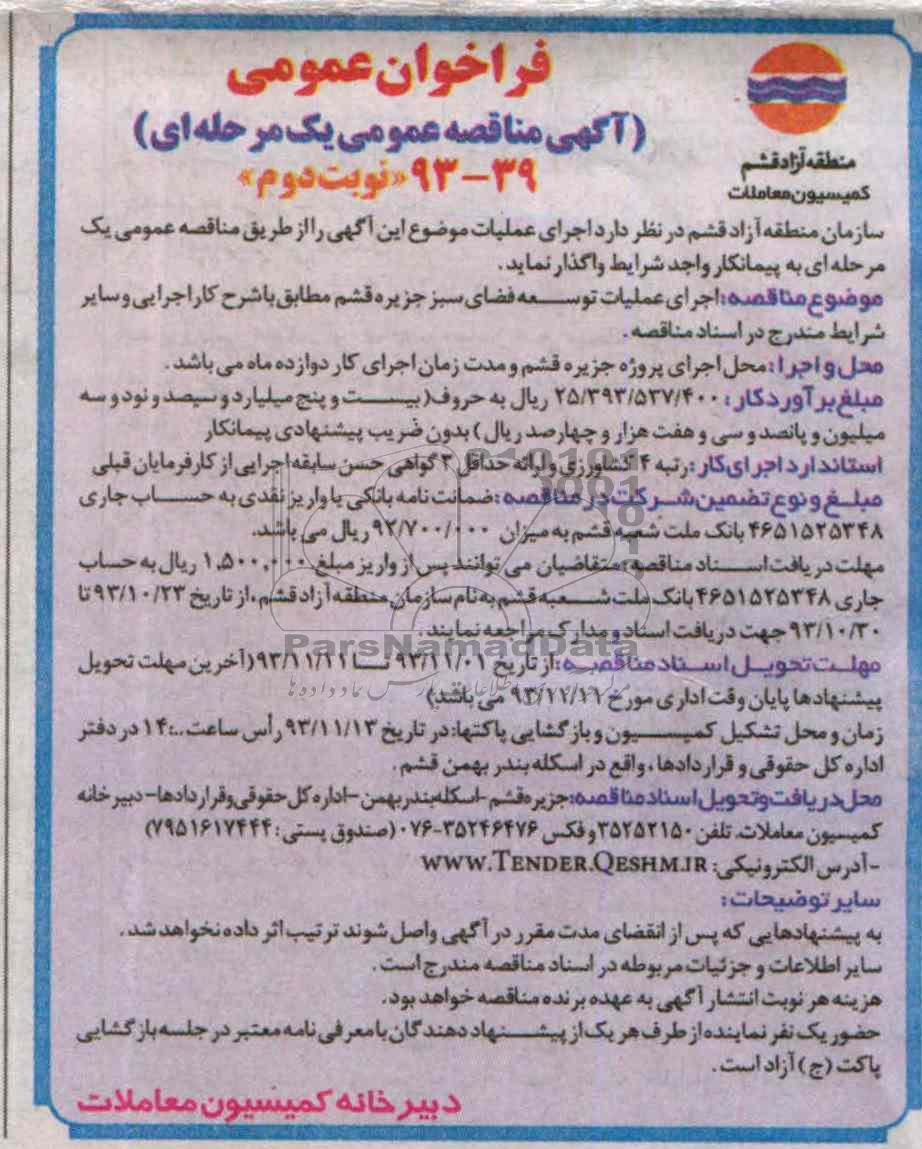 فراخوان عمومی
(آگهی مناقصه عمومی یک مرحله ای)
۳۹-۹۳ «نوبت دوم»
منطقه آزاد قشم
کمیسیون معاملات
سازمان منطقه آزاد قشم در نظر دارد اجرای عملیات موضوع این آگهی را از طریق مناقصه عمومی یک
مرحله ای به پیمانکار واجد شرایط واگذار نماید.
موضوع مناقصه: اجرای عملیات توسعه فضای سبز جزیره قشم مطابق با شرح کار اجرایی و سایر
شرایط مندرج در اسناد مناقصه.
محل و اجرا: محل اجرای پروژه جزیره قشم و مدت زمان اجرای کار دوازده ماه می باشد.
مبلغ برآورد کار: ۲۵/۳۹۳/۵۳۷/۴۰۰ ریال به حروف (بیست و پنج میلیارد و سیصد و نود و سه
میلیون و پانصد و سی و هفت هزار و چهارصد ریال) بدون ضریب پیشنهادی پیمانکار
استاندارد اجرای کار: رتبه ۴ کشاورزی و ارائه حداقل ۳ گواهی حسن سابقه اجرایی از کارفرمایان قبلی
مبلغ و نوع تضمین شرکت در مناقصه: ضمانت نامه بانکی یا واریز نقدی به حساب جاری
۴۶۵۱۵۲۵۳۴۸ بانک ملت شعبه قشم به میزان ۹۲/۷۰۰/۰۰۰ ریال می باشد.
مهلت دریافت اسناد مناقصه: متقاضیان می توانند پس از واریز مبلغ ۱,۵۰۰,۰۰۰ ریال به حساب
جاری ۴۶۵۱۵۲۵۳۴۸ بانک ملت شعبه قشم به نام سازمان منطقه آزاد قشم، از تاریخ ۹۳/۱۰/۲۳ تا
۹۳/۱۰/۳۰ جهت دریافت اسناد و مدارک مراجعه نمایند.
مهلت تحویل اسناد مناقصه: از تاریخ ۹۳/۱۱/۰۱ تا ۹۳/۱۱/۱۱ (آخرین مهلت تحویل
پیشنهادها پایان وقت اداری مورخ ۹۳/۱۱/۱۱ می باشد)
زمان و محل تشکیل کمیسیون و بازگشایی پاکتها: در تاریخ ۹۳/۱۱/۱۳ رأس ساعت ۱۴:۰۰ در دفتر
اداره کل حقوقی و قراردادها، واقع در اسکله بندر بهمن قشم.
محل دریافت و تحویل اسناد مناقصه: جزیره قشم - اسکله بندر بهمن - اداره کل حقوقی و قراردادها - دبیرخانه
کمیسیون معاملات. تلفن ۳۵۲۵۲۱۵۰ و فکس ۳۵۲۴۶۴۷۶-۰۷۶ (صندوق پستی: ۷۹۵۱۶۱۷۴۴۴)
- آدرس الکترونیکی: WWW.TENDER.QESHM.IR
سایر توضیحات:
به پیشنهادهایی که پس از انقضای مدت مقرر در آگهی واصل شوند ترتیب اثر داده نخواهد شد.
سایر اطلاعات و جزئیات مربوطه در اسناد مناقصه مندرج است.
هزینه هر نوبت انتشار آگهی به عهده برنده مناقصه خواهد بود.
حضور یک نفر نماینده از طرف هر یک از پیشنهاد دهندگان با معرفی نامه معتبر در جلسه بازگشایی
پاکت (ج) آزاد است.
دبیرخانه کمیسیون معاملات
ParsNamadData